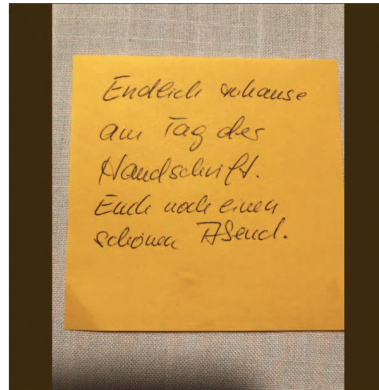 Endlich zuhause
am Tag der
Handschrift.
Euch noch einen
schönen Abend.